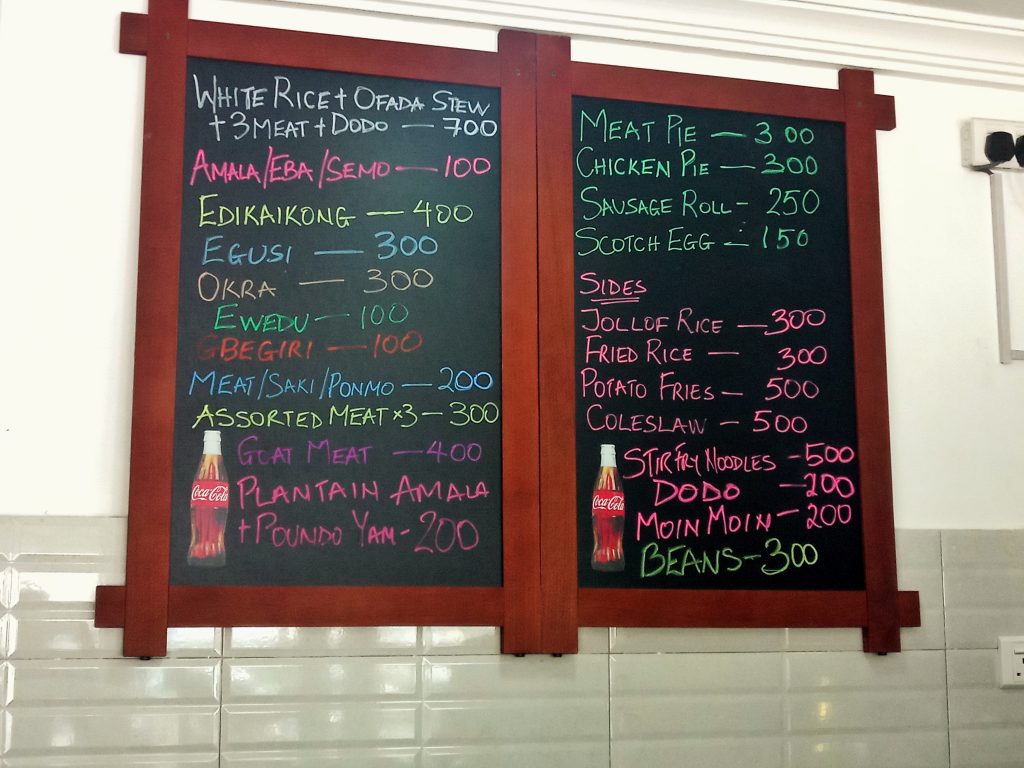 WHITE RICE + OFADA STEW
+ 3 MEAT + DODO — 700
AMALA/EBA/SEMO — 100
EDIKAIKONG — 400
EGUSI — 300
OKRA — 300
EWEDU — 100
GBEGIRI — 100
MEAT/SAKI/PONMO — 200
ASSORTED MEAT x3 — 300
GOAT MEAT — 400
PLANTAIN AMALA
+ POUNDO YAM - 200
Coca-Cola
MEAT PIE — 300
CHICKEN PIE — 300
SAUSAGE ROLL - 250
SCOTCH EGG — 150
SIDES
JOLLOF RICE — 300
FRIED RICE — 300
POTATO FRIES — 500
COLESLAW — 500
STIR FRY NOODLES - 500
DODO — 200
MOIN MOIN — 200
BEANS — 300
Coca-Cola